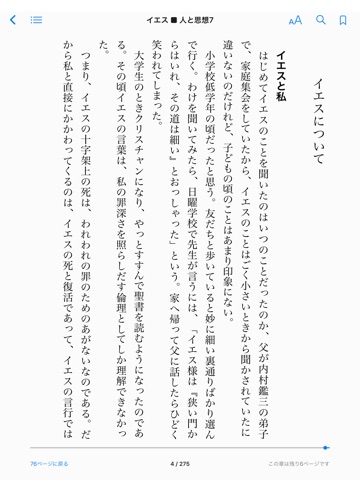 イエス ■ 人と思想7
AA
イエスについて
イエスと私
はじめてイエスのことを聞いたのはいつのことだったのか、父が内村鑑三の弟子
で、家庭集会をしていたから、イエスのことはごく小さいときから聞かされていたに
違いないのだけれど、子どもの頃のことはあまり印象にない。
小学校低学年の頃だったと思う。友だちと歩いていると妙に細い裏通りばかり選ん
で行く。わけを聞いてみたら、日曜学校で先生が言うには、「イエス様は『狭い門か
らはいれ、その道は細い』とおっしゃった」という。家へ帰って父に話したらひどく
笑われてしまった。
大学生のときクリスチャンになり、やっとすすんで聖書を読むようになったのであ
る。その頃イエスの言葉は、私の罪深さを照らしだす倫理としてしか理解できなかっ
た。
つまり、イエスの十字架上の死は、われわれの罪のためのあがないなのである。だ
から私と直接にかかわってくるのは、イエスの死と復活であって、イエスの言行では
76ページに戻る
4 / 275
この章は残り6ページです